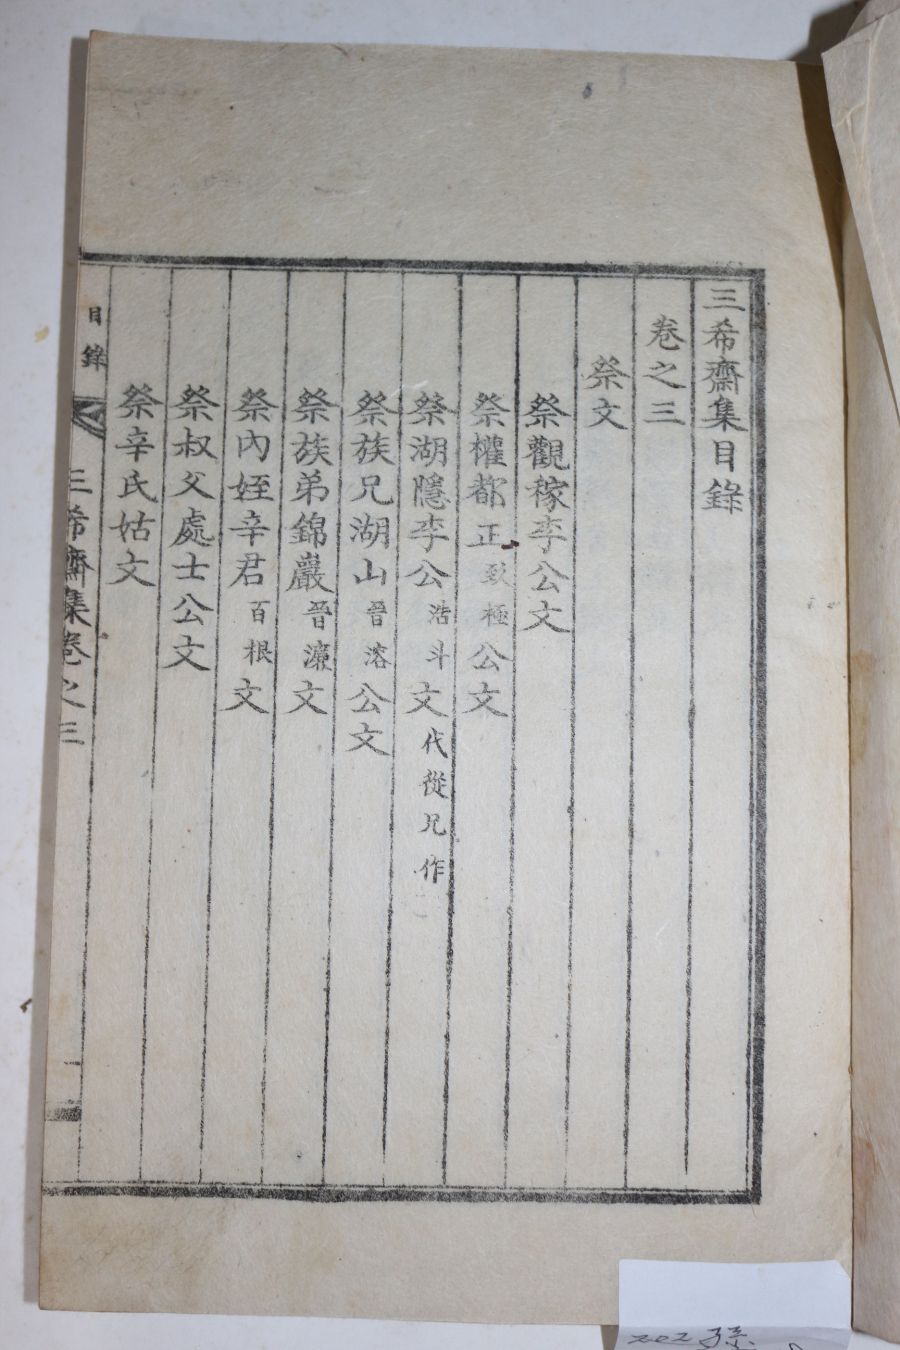 三希齋集目錄
卷之三
祭文
祭觀稼李公文
祭權都正致極公文
祭湖隱李公浩斗文代從兄作
祭族兄湖山晉溶公文
祭族弟錦巖晉濂文
祭內姪辛君百根文
祭叔父處士公文
祭辛氏姑文
目錄
三希齋集卷之三
一
202